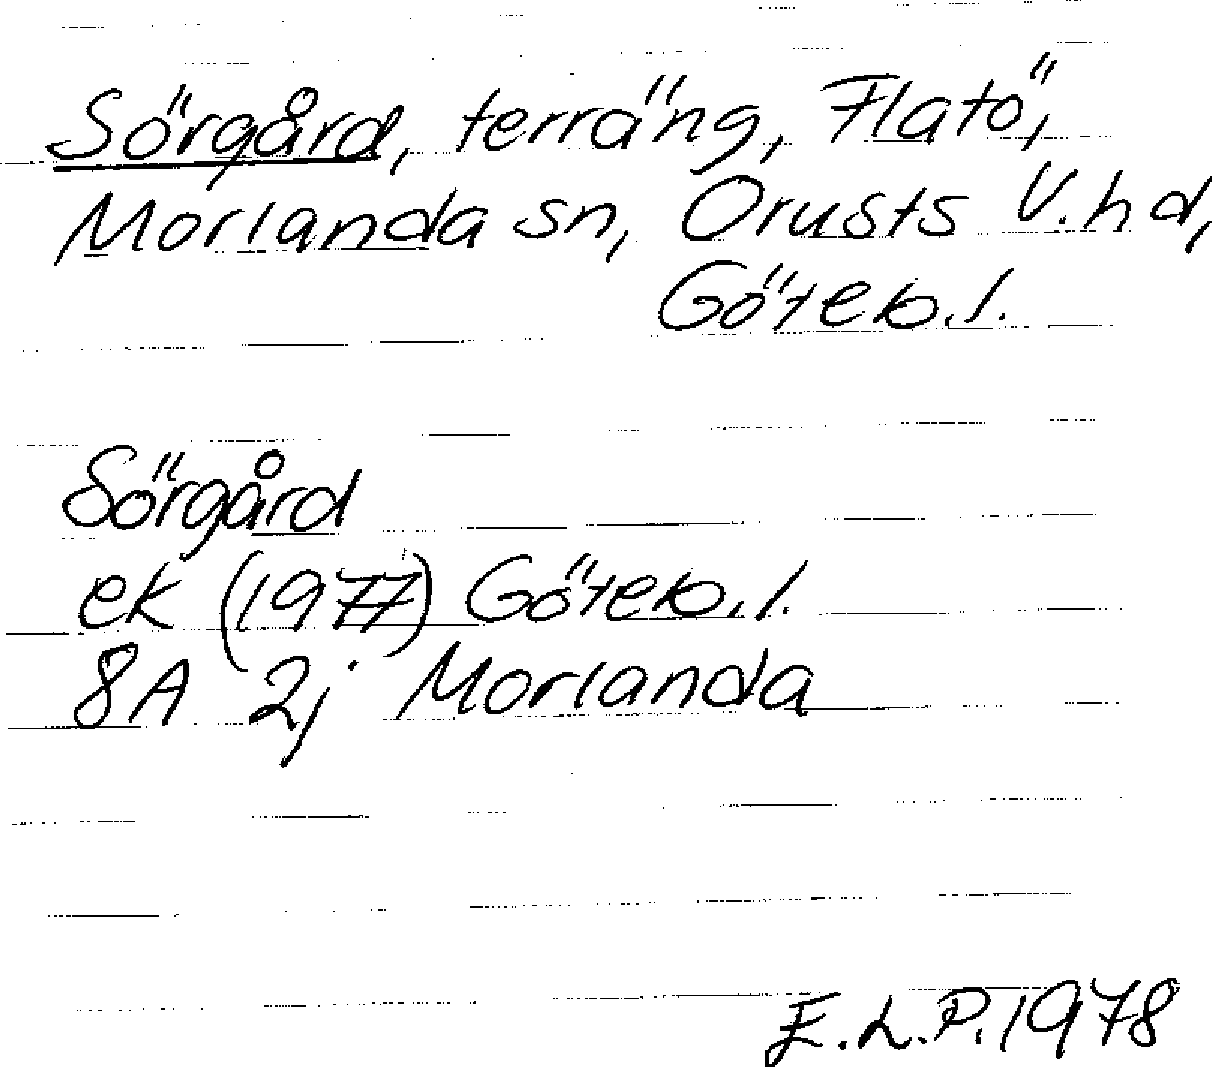 Sörgård, terräng, Flatö,
Morlanda sn, Orusts V. hd,
Göteb. l.
Sörgård
ek (1977) Göteb. l.
8A 2j Morlanda
E.L.P. 1978